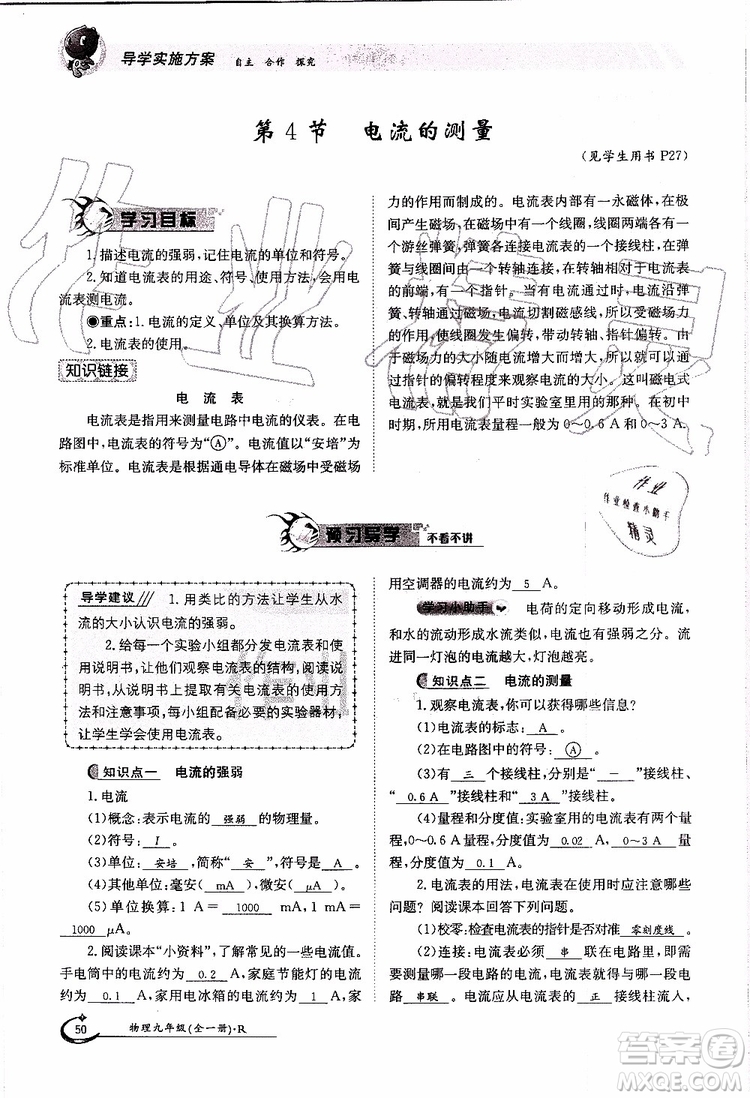 导学实施方案 自主 合作 探究
第4节 电流的测量
(见学生用书 P27)
学习目标
1.描述电流的强弱,记住电流的单位和符号。
2.知道电流表的用途、符号、使用方法,会用电
流表测电流。
◉重点:1.电流的定义、单位及其换算方法。
2.电流表的使用。
知识链接
电 流 表
电流表是指用来测量电路中电流的仪表。在
电路图中,电流表的符号为“Ⓐ”。电流值以“安培”为
标准单位。电流表是根据通电导体在磁场中受磁场
力的作用而制成的。电流表内部有一永磁体,在极
间产生磁场,在磁场中有一个线圈,线圈两端各有一
个游丝弹簧,弹簧各连接电流表的一个接线柱,在弹
簧与线圈间由一个转轴连接,在转轴相对于电流表
的前端,有一个指针。当有电流通过时,电流沿弹
簧、转轴通过磁场,电流切割磁感线,所以受磁场力
的作用,使线圈发生偏转,带动转轴、指针偏转。由
于磁场力的大小随电流增大而增大,所以就可以通
过指针的偏转程度来观察电流的大小。这叫磁电式
电流表,就是我们平时实验室里用的那种。在初中
时期,所用电流表量程一般为0~0.6 A和0~3 A。
预习导学 不看不讲
导学建议 1.用类比的方法让学生从水
流的大小认识电流的强弱。
2.给每一个实验小组都分发电流表和
使用说明书,让他们观察电流表的结构,阅读说
明书,从中提取有关电流表的使用方法
和注意事项,每小组配备必要的实验器材,
让学生学会使用电流表。
知识点一 电流的强弱
1.电流
(1)概念:表示电流的 强弱 的物理量。
(2)符号: I 。
(3)单位: 安培 ,简称“ 安 ”,符号是 A 。
(4)其他单位:毫安( mA ),微安( μA )。
(5)单位换算:1 A= 1000 mA,1 mA=
1000 μA。
2.阅读课本“小资料”,了解常见的一些电流值。
手电筒中的电流约为 0.2 A,家庭节能灯的电流
约为 0.1 A,家用电冰箱的电流约为 1 A,家
用空调器的电流约为 5 A。
学习小助手 电荷的定向移动形成电流,
和水的流动形成水流类似,电流也有强弱之分。流
进同一灯泡的电流越大,灯泡越亮。
知识点二 电流的测量
1.观察电流表,你可以获得哪些信息?
(1)电流表的标志: A 。
(2)在电路图中的符号: Ⓐ 。
(3)有 三 个接线柱,分别是“ − ”接线柱、
“ 0.6 A ”接线柱和“ 3 A ”接线柱。
(4)量程和分度值:实验室用的电流表有两个量
程,0~0.6 A,分度值为 0.02 A, 0~3 A ,
分度值为 0.1 A。
2.电流表的用法,电流表在使用时应注意哪些
问题? 阅读课本回答下列问题。
(1)校零:检查电流表的指针是否指为 零刻度线 。
(2)连接:电流表必须 串 联在电路里,即与
待测电路的电流,电流表必须和待测的用电器
串联 ,这时必须使电流从 正 接线柱流入,从
50 物理九年级(全一册)·R
作业检查小助手
精灵
作业精灵
作业
答案圈
MXQE.COM